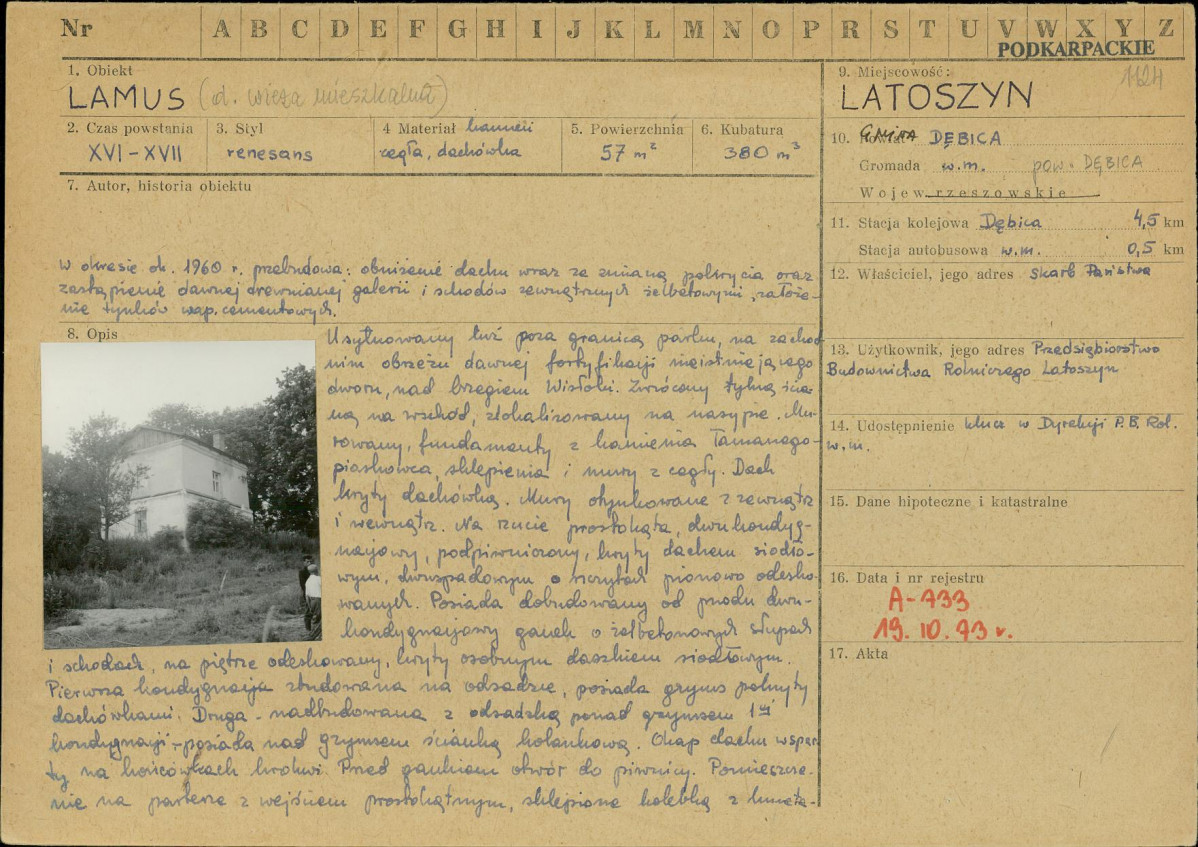 Nr A B C D E F G H I J K L M N O P R S T U V W X Y Z
PODKARPACKIE
1. Obiekt
LAMUS (d. wieża mieszkalna)
2. Czas powstania
XVI - XVII
3. Styl
renesans
4 Materiał kamień
cegła, dachówka
5. Powierzchnia
57 m²
6. Kubatura
380 m³
7. Autor, historia obiektu
W okresie ok. 1960 r. przebudowa: obniżenie dachu wraz ze zmianą pokrycia oraz
zastąpienie dawnej drewnianej galerii i schodów zewnętrznych żelbetowymi, założe-
nie tynków wap. cementowych.
8. Opis
Usytuowany tuż poza granicą parku, na zachod
nim obrzeżu dawnej fortyfikacji nieistniejącego
dworu, nad brzegiem Wisłoki. Zwrócony tylną ścia
ną na wschód, zlokalizowany na nasypie. Mu-
rowany, fundamenty z kamienia łamanego-
piaskowca, sklepienia i mury z cegły. Dach
kryty dachówką. Mury otynkowane z zewnątrz
i wewnątrz. Na rzucie prostokąta, dwukondyg-
nacjowy, podpiwniczony, kryty dachem siodło-
wym, dwuspadowym o szczytach pionowo odesko-
wanych. Posiada dobudowany od przodu dwu-
kondygnacjowy ganek o żelbetonowych słupach
i schodach, na piętrze odeskowany, kryty osobnym daszkiem siodłowym.
Pierwsza kondygnacja zbudowana na odsadzie, posiada gzyms pokryty
dachówkami. Druga - nadbudowana z odsadzką ponad gzymsem 1ej
kondygnacji - posiada nad gzymsem ściankę kolankową. Okap dachu wspar
ty na końcówkach krokwi. Przed gankiem otwór do piwnicy. Pomieszcze-
nie na parterze z wejściem prostokątnym, sklepione kolebką z luneta-
9. Miejscowość:
1124
LATOSZYN
10. Powiat Gmina DĘBICA
Gromada w.m. pow. DĘBICA
Wojew. rzeszowskie
11. Stacja kolejowa Dębica 4,5 km
Stacja autobusowa w.m. 0,5 km
12. Właściciel, jego adres Skarb Państwa
13. Użytkownik, jego adres Przedsiębiorstwo
Budownictwa Rolniczego Latoszyn
14. Udostępnienie klucz w Dyrekcji P.B. Rol.
w.m.
15. Dane hipoteczne i katastralne
16. Data i nr rejestru
A-733
19. 10. 73 r.
17. Akta